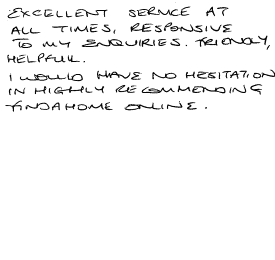 EXCELLENT SERVICE AT
ALL TIMES, RESPONSIVE
TO MY ENQUIRIES. FRIENDLY,
HELPFUL.
I WOULD HAVE NO HESITATION
IN HIGHLY RECOMMENDING
FINDAHOME ONLINE.